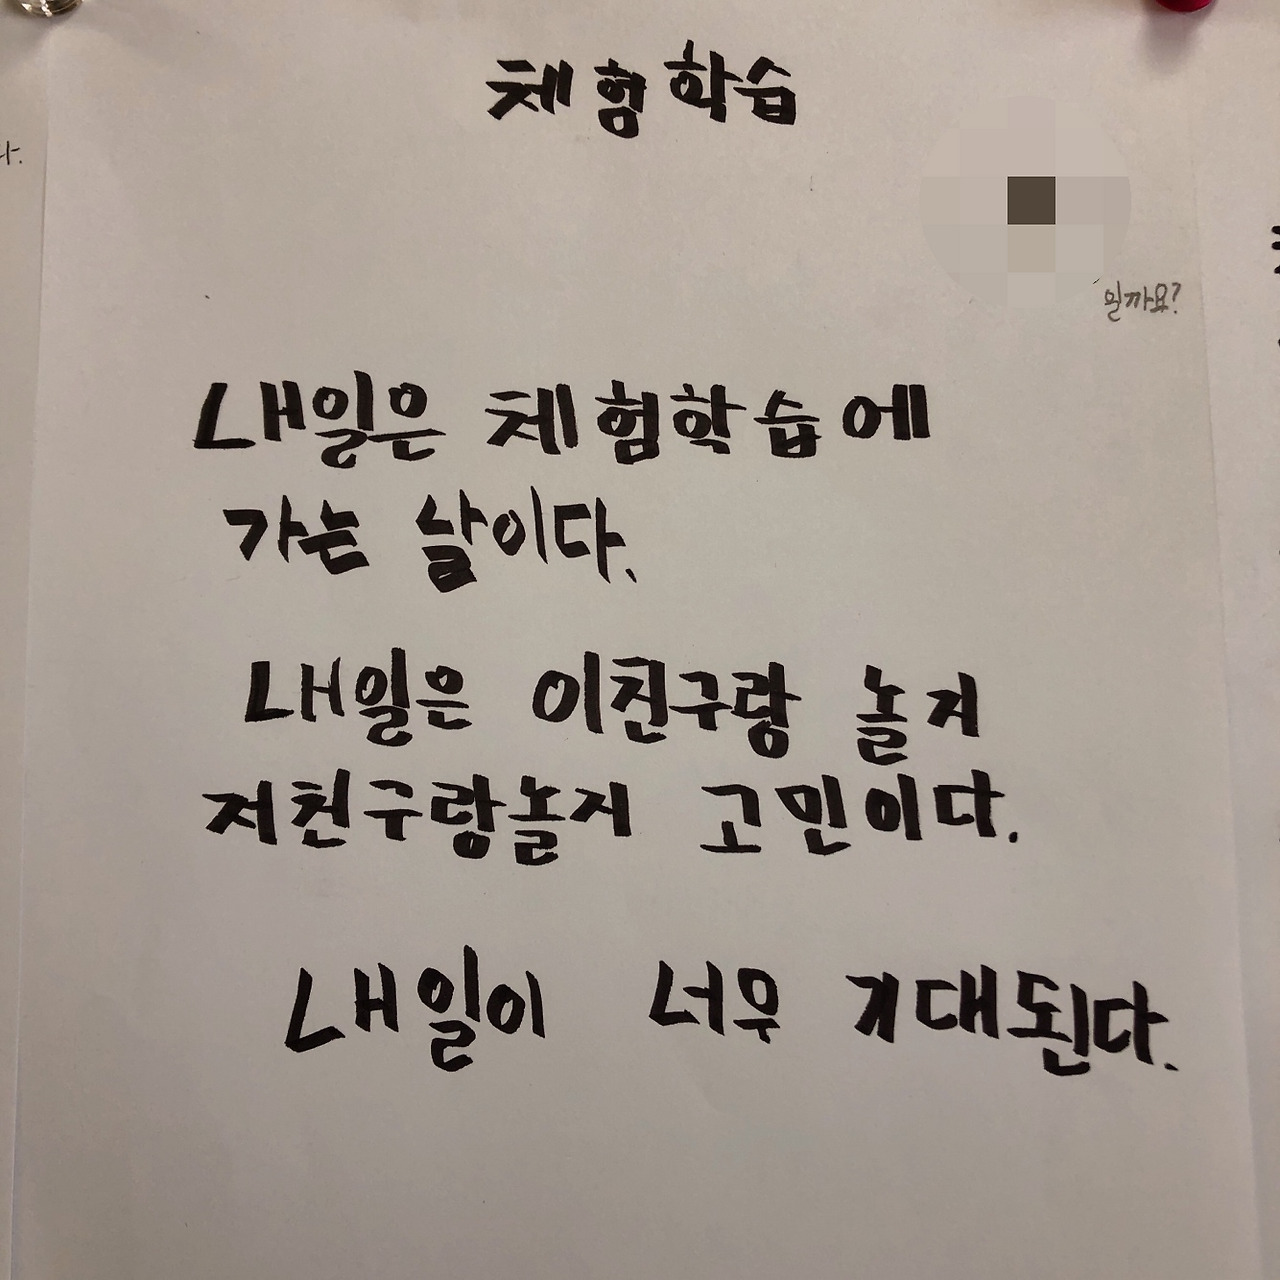 체험학습
다.
일까요?
내일은 체험학습에
가는 날이다.
내일은 이친구랑 놀지
저친구랑놀지 고민이다.
내일이 너무 기대된다.